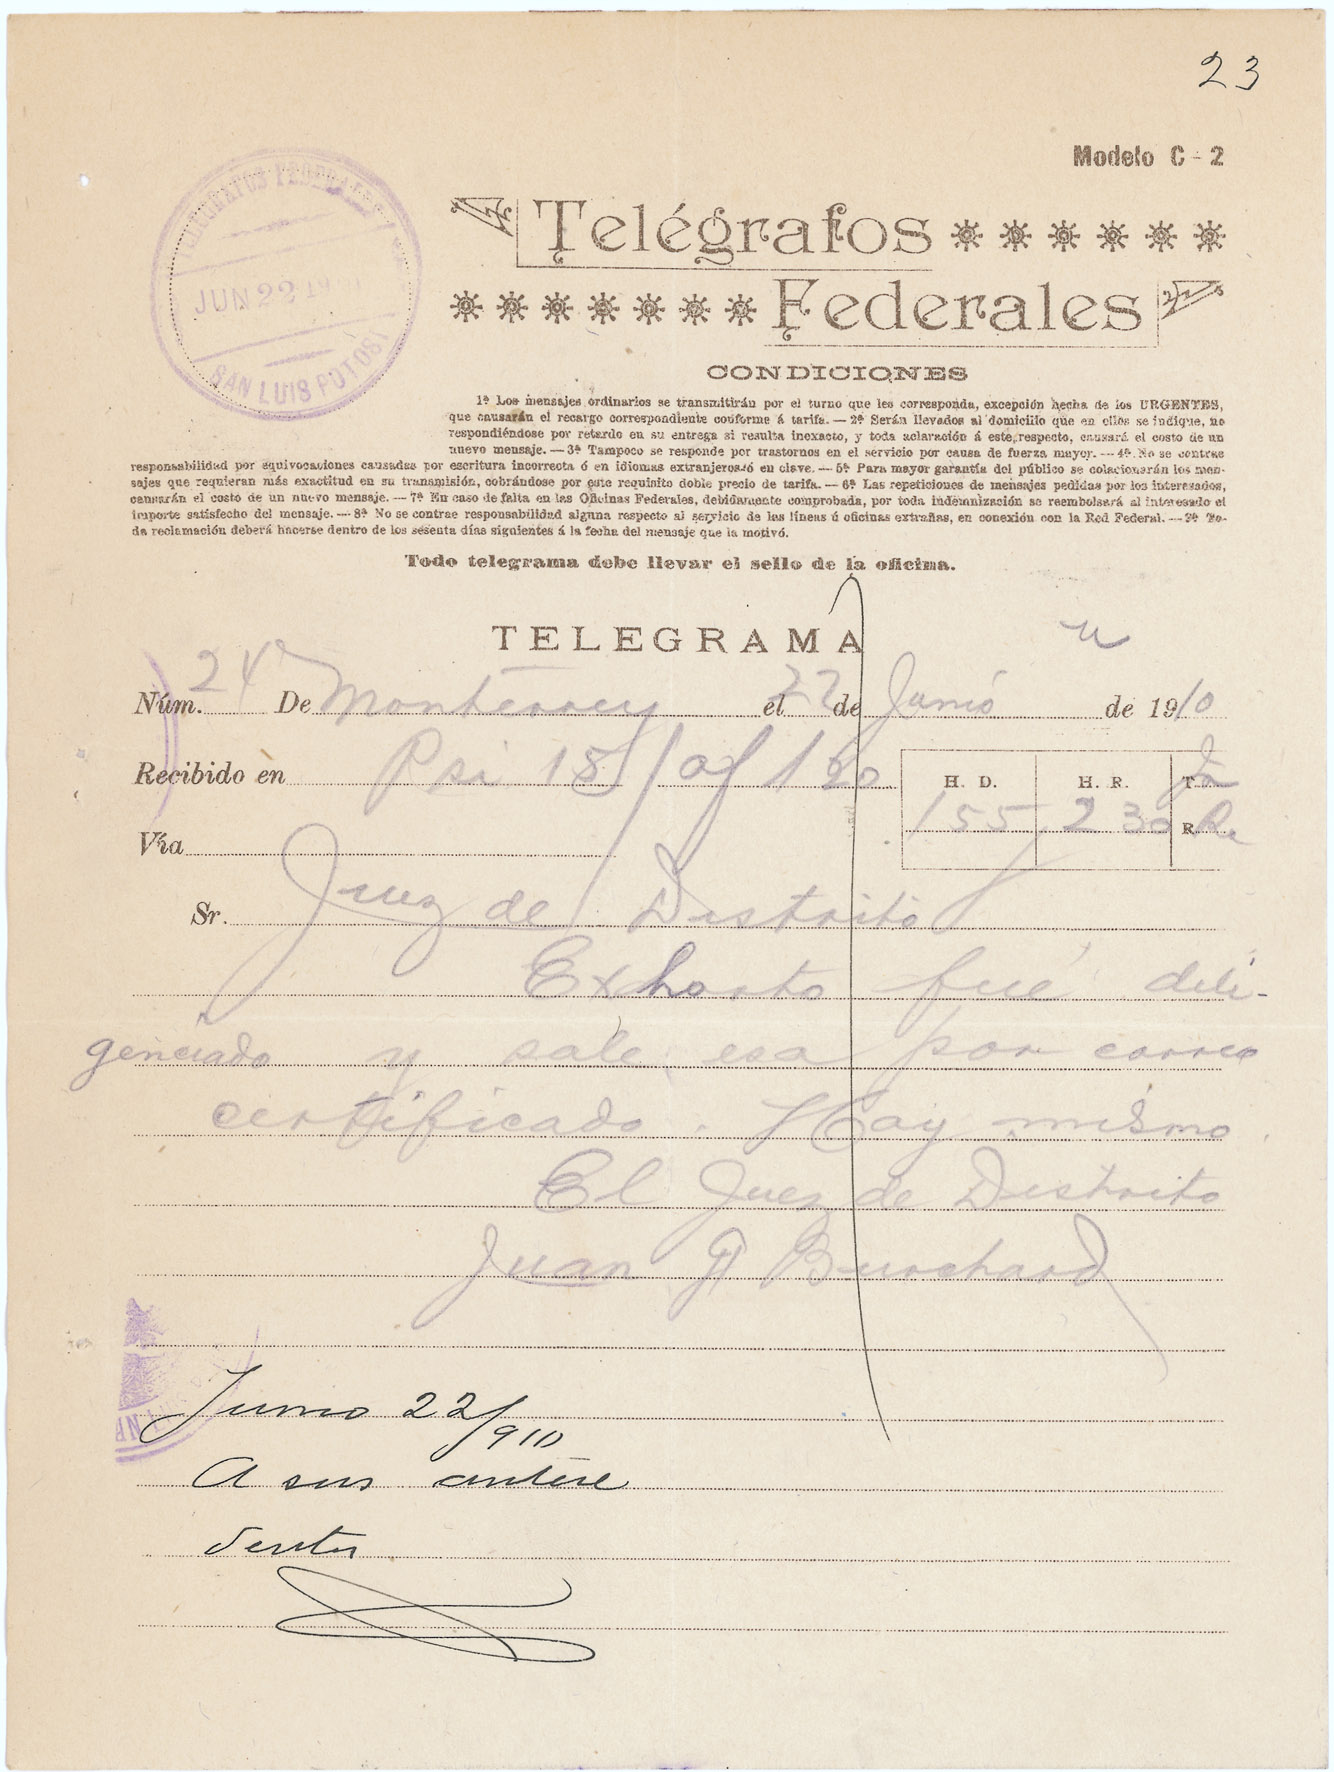 23
Modelo C - 2
TELEGRAFOS FEDERALES
JUN 22
SAN LUIS POTOSI
Telégrafos
Federales
CONDICIONES
1ª Los mensajes ordinarios se transmitirán por el turno que les corresponda, excepción hecha de los URGENTES,
que causarán el recargo correspondiente conforme á tarifa. — 2ª Serán llevados al domicilio que en ellos se indique, no
respondiéndose por retardo en su entrega si resulta inexacto, y toda aclaración á este respecto, causará el costo de un
nuevo mensaje. — 3ª Tampoco se responde por trastornos en el servicio por causa de fuerza mayor. — 4ª No se contrae
responsabilidad por equivocaciones causadas por escritura incorrecta ó en idiomas extranjeros ó en clave. — 5ª Para mayor garantía del público se colacionarán los men-
sajes que requieran más exactitud en su transmisión, cobrándose por este requisito doble precio de tarifa. — 6ª Las repeticiones de mensajes pedidas por los interesados,
causarán el costo de un nuevo mensaje. — 7ª En caso de falta en las Oficinas Federales, debidamente comprobada, por toda indemnización se reembolsará al interesado el
importe satisfecho del mensaje. — 8ª No se contrae responsabilidad alguna respecto al servicio de las líneas ú oficinas extrañas, en conexión con la Red Federal. — 9ª To-
da reclamación deberá hacerse dentro de los sesenta días siguientes á la fecha del mensaje que la motivó.
Todo telegrama debe llevar el sello de la oficina.
TELEGRAMA
Núm. 24 De Monterrey el 22 de Junio de 1910
Recibido en Psi 15 of 120
H. D. H. R. T.
155 230 R.
Vía
Sr. Juez de Distrito
Exhorto fué dili-
genciado y sale esa por correo
certificado. Hoy mismo.
El Juez de Distrito
Juan G Burchard
Junio 22/910
A sus antece
dentes